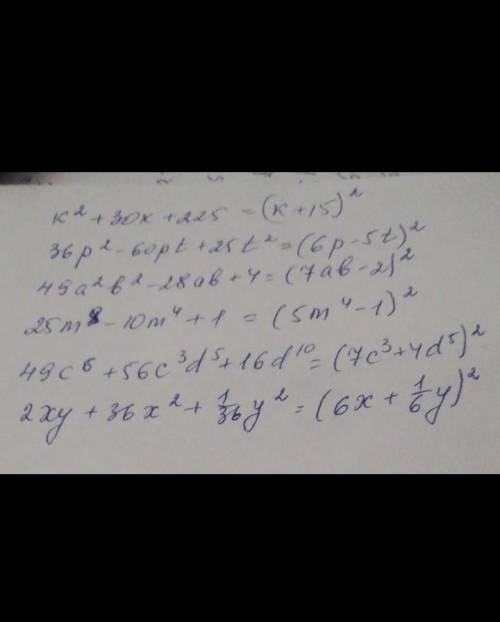 к² + 30х + 225 = (к + 15)²
36p² - 60pt + 25t² = (6p - 5t)²
49a²b² - 28ab + 4 = (7ab - 2)²
25m⁸ - 10m⁴ + 1 = (5m⁴ - 1)²
49c⁶ + 56c³d⁵ + 16d¹⁰ = (7c³ + 4d⁵)²
2xy + 36x² + 1/36 y² = (6x + 1/6 y)²